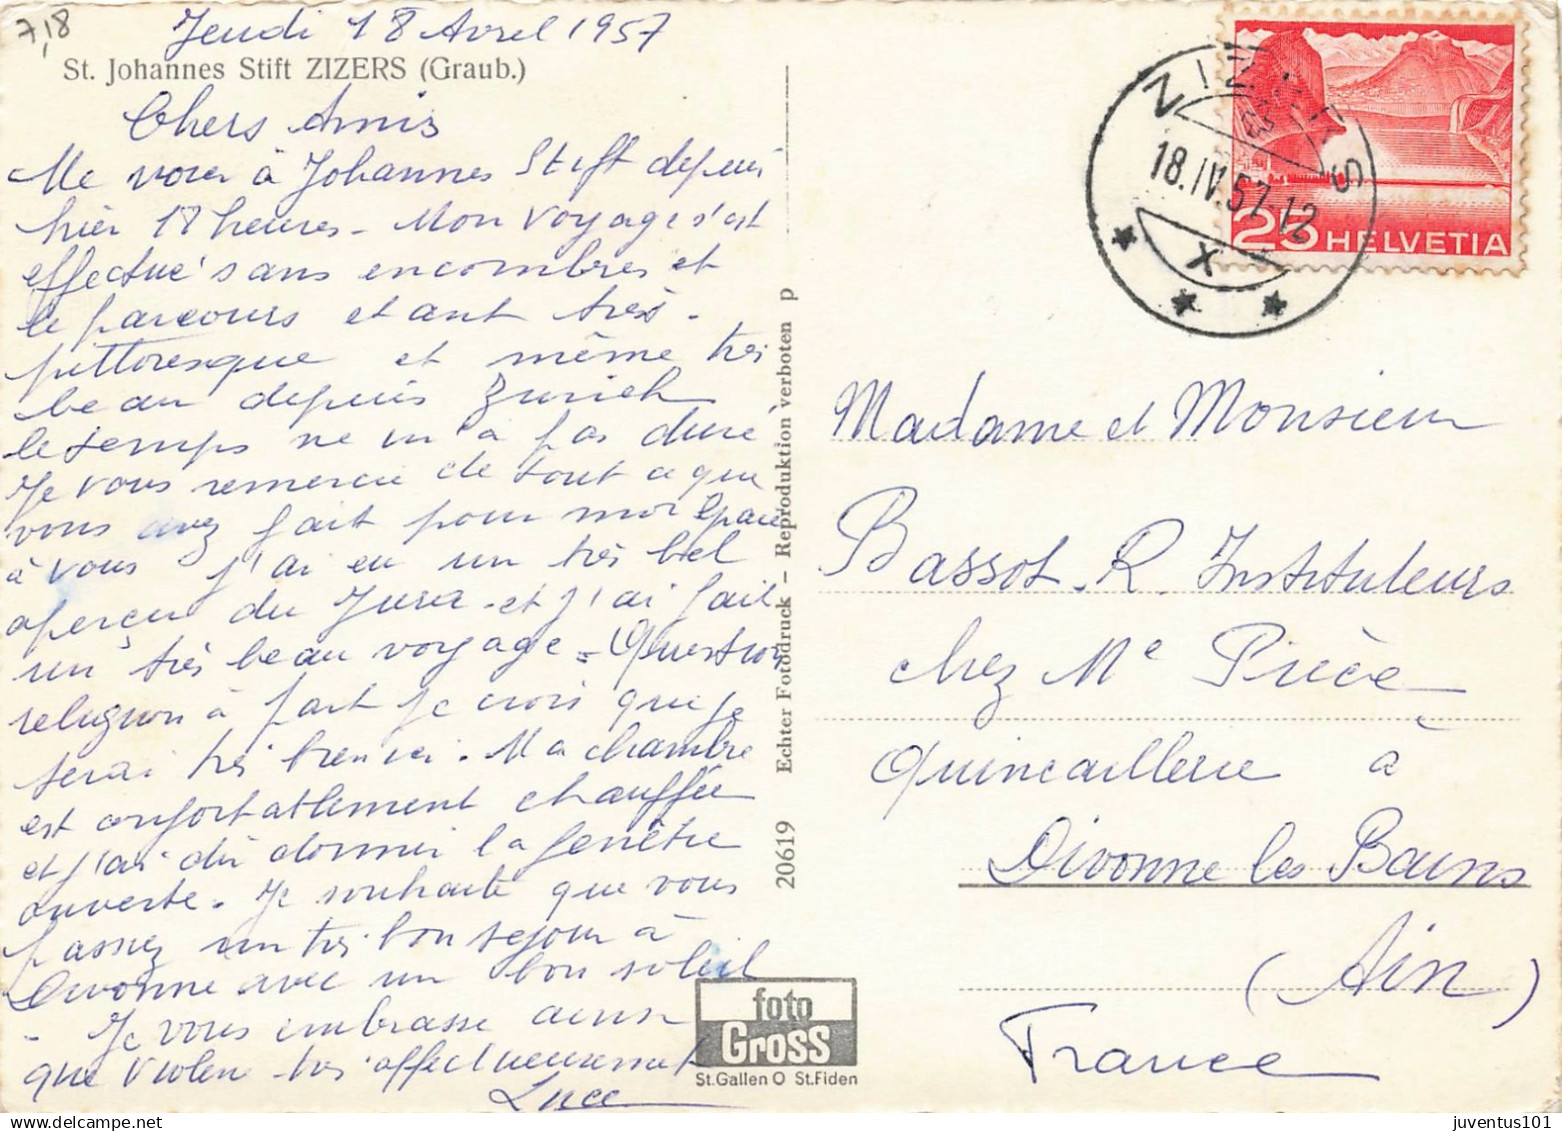 7,18
Jeudi 18 Avril 1957
St. Johannes Stift ZIZERS (Graub.)
Chers Amis
Me voici à Johannes Stift depuis
hier 18 heures - Mon voyage s'est
effectué sans encombres et
le parcours etant très -
pittoresque et même très
beau depuis Zurich,
le temps ne m'a pas duré,
Je vous remercie de tout ce que
vous avez fait pour moi Grace
à vous j'ai eu un très bel
aperçu du Jura - et j'ai fait
un très beau voyage - Question
religion à part je crois que je
serai très bien ici. Ma chambre
est confortablement chauffée
et j'ai dû dormir la fenêtre
ouverte. Je souhaite que vous
passiez un très bon sejour à
Divonne avec un bon soleil
- Je vous embrasse ainsi
que Violene très affectueusement
Luce
20619 Echter Fotodruck – Reproduktion verboten p
foto
Gross
St.Gallen O St.Fiden
ZIZERS
18.IV.57-12
X
25 HELVETIA
Madame et Monsieur
Bassot. R. Instituteurs
chez Me Prière
Quincaillerie à
Divonne les Bains
(Ain)
France
juventus101